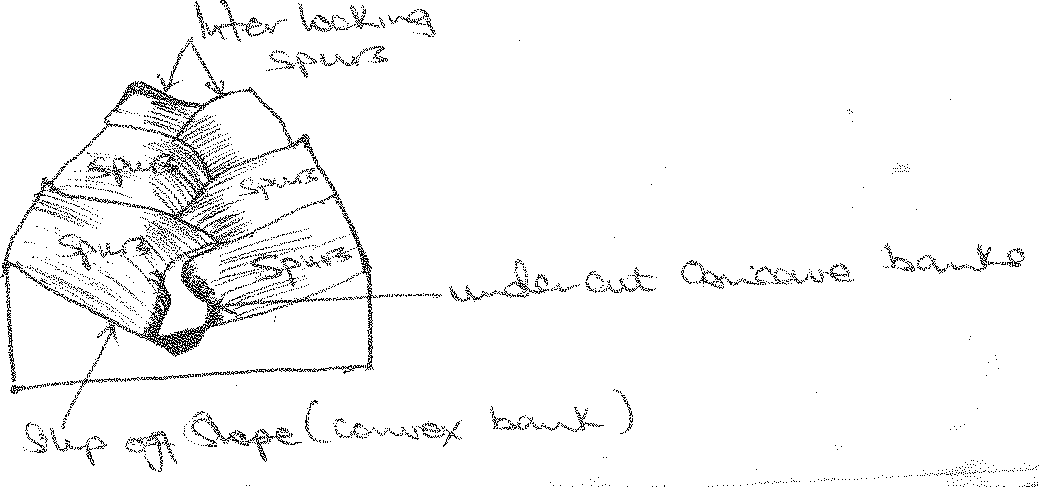 Inter locking
spurs
spurs
spurs
spurs
spurs
under cut concave banks
Slip off Slope (convex bank)